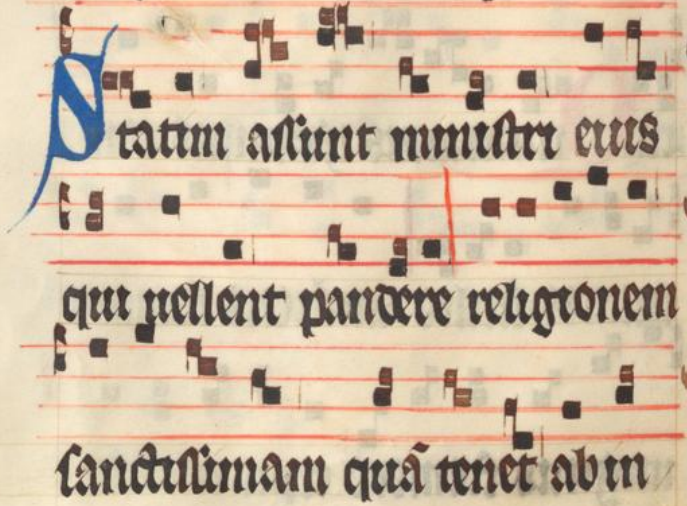 Statim assunt ministri eius
qui uellent pandere religionem
sanctissimam quā tenet ab in